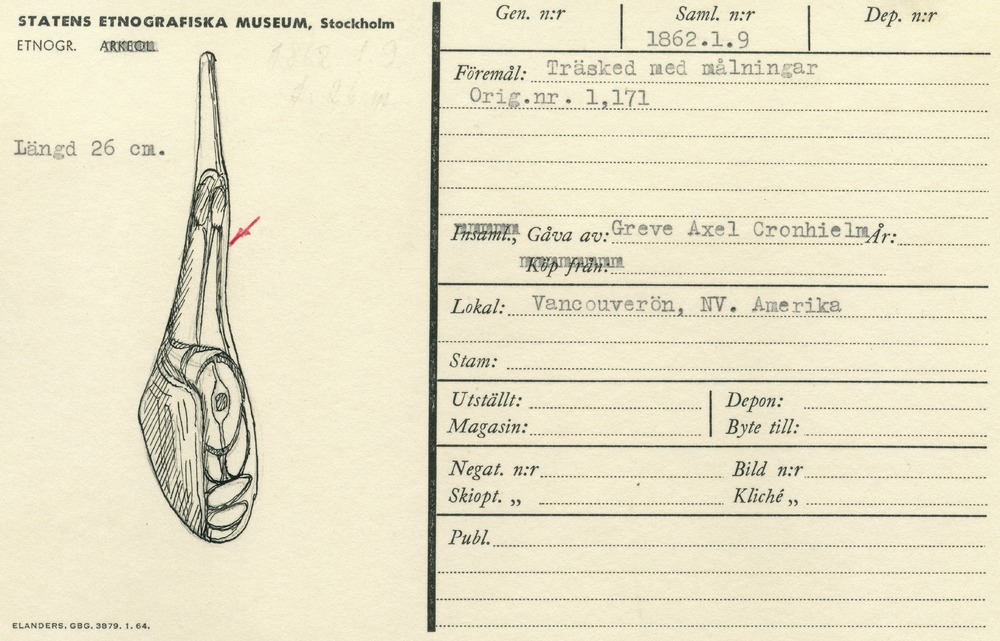 STATENS ETNOGRAFISKA MUSEUM, Stockholm
ETNOGR. ARKEOL.
1862.1.9
Längd 26 cm.
ELANDERS. GBG. 3879. 1. 64.
Gen. n:r
Saml. n:r
Dep. n:r
1862.1.9
Föremål: Träsked med målningar
Orig.nr. 1,171
Insaml., Gåva av: Greve Axel Cronhielm År:
Köp från:
Lokal: Vancouverön, NV. Amerika
Stam:
Utställt: Depon:
Magasin: Byte till:
Negat. n:r Bild n:r
Skiopt. „ Kliché „
Publ.